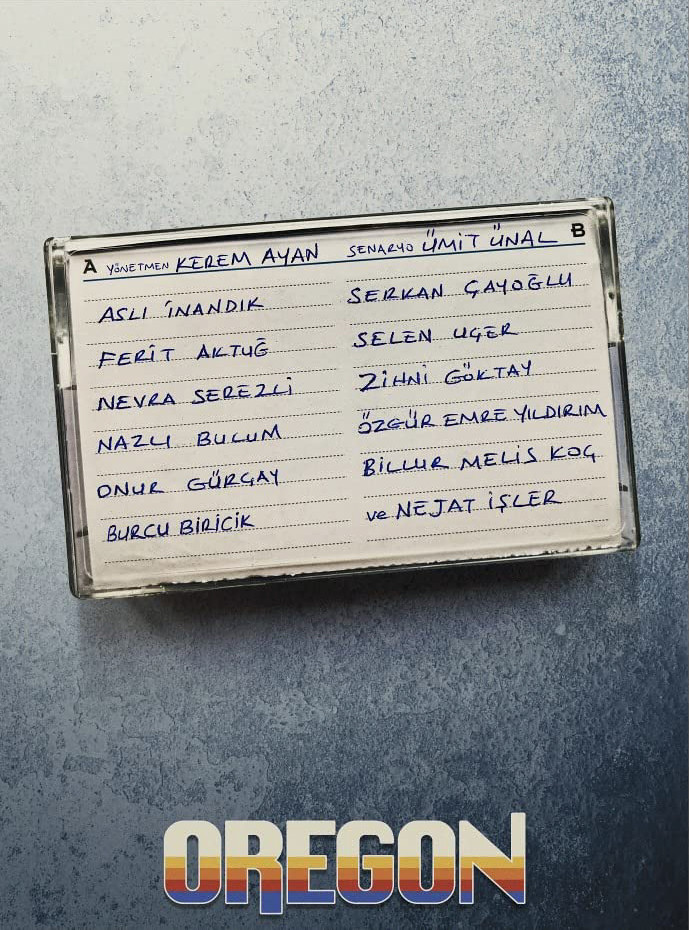 A YÖNETMEN KEREM AYAN SENARYO ÜMİT ÜNAL B
ASLI İNANDIK
FERİT AKTUĞ
NEVRA SEREZLİ
NAZLI BULUM
ONUR GÜRÇAY
BURCU BİRİCİK
SERKAN ÇAYOĞLU
SELEN UÇER
ZİHNİ GÖKTAY
ÖZGÜR EMRE YILDIRIM
BİLLUR MELİS KOÇ
ve NEJAT İŞLER
OREGON